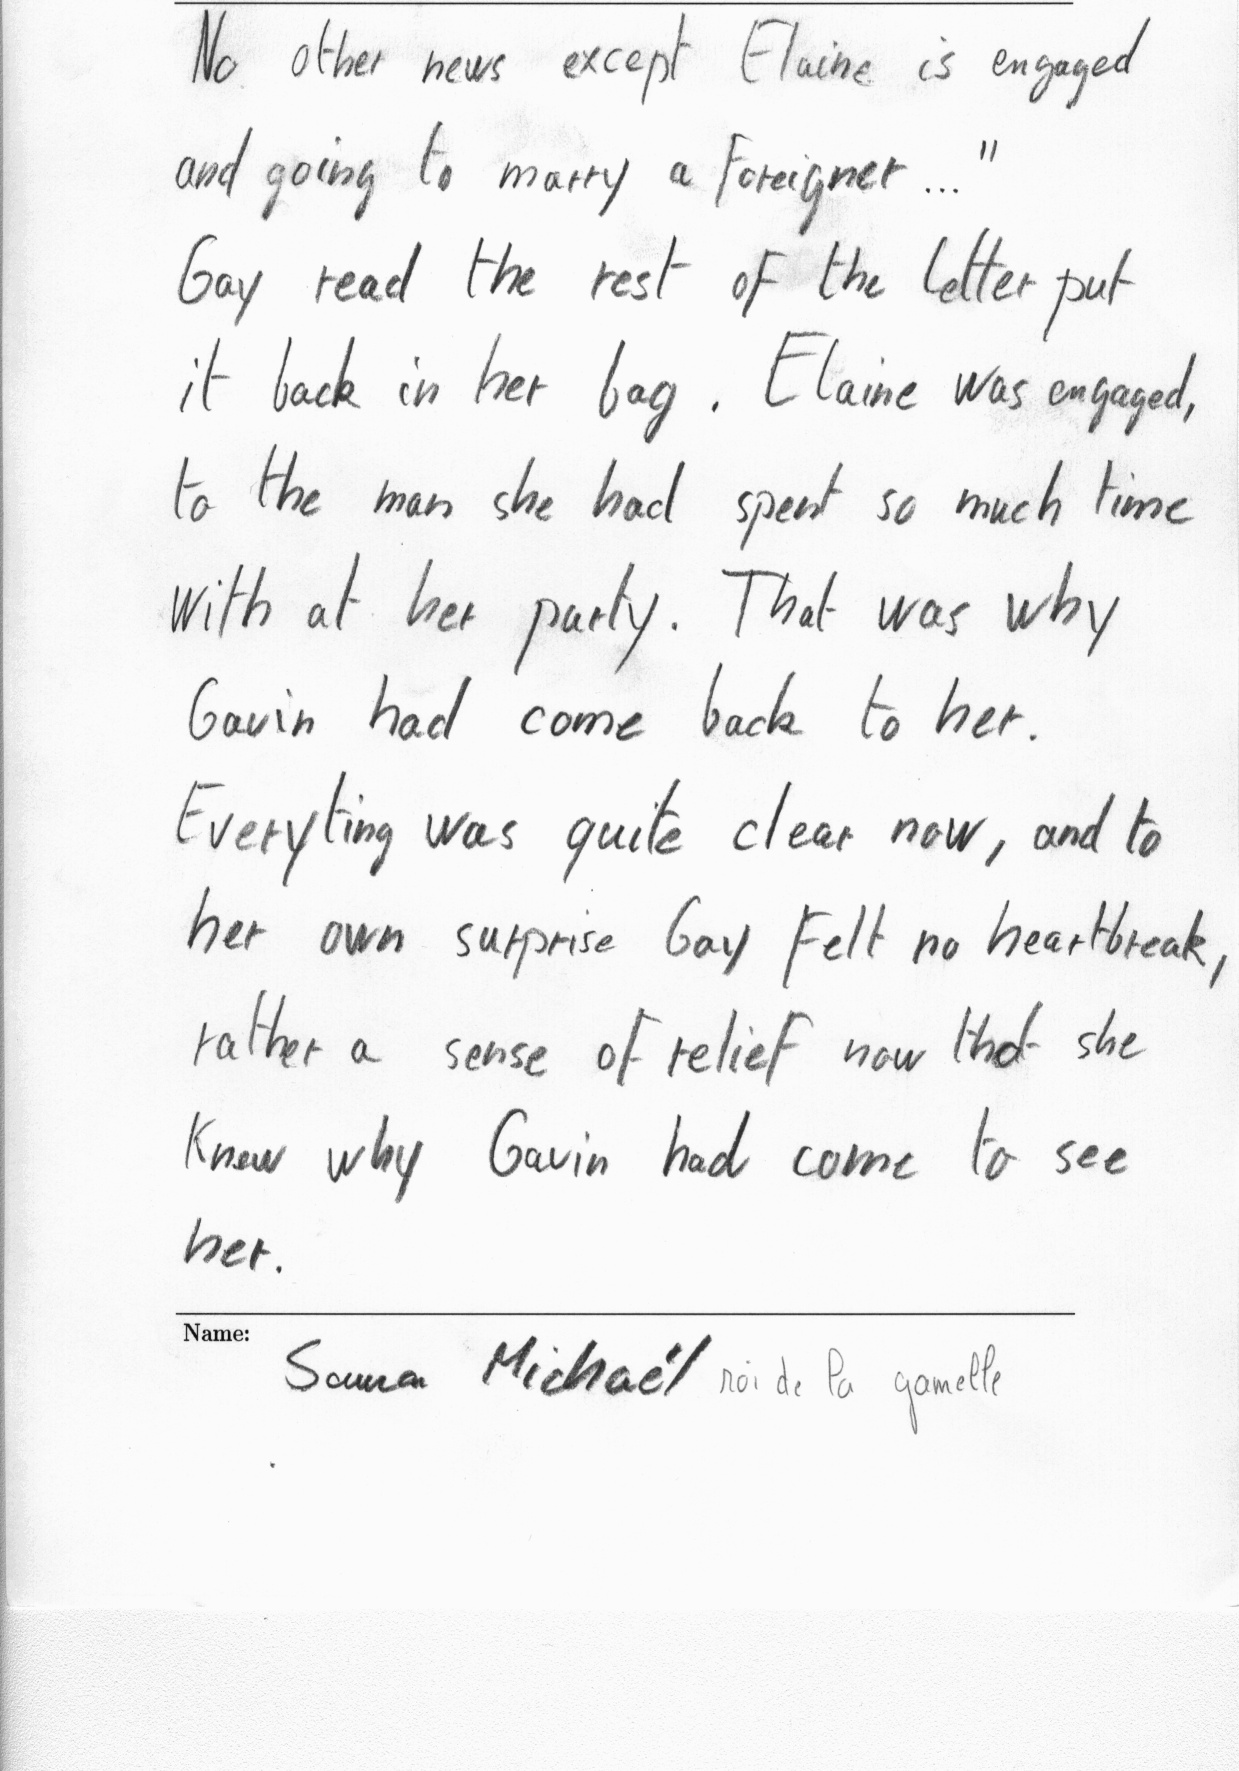 No other news except Elaine is engaged
and going to marry a foreigner ..."
Gay read the rest of the letter put
it back in her bag . Elaine was engaged,
to the man she had spent so much time
with at her party. That was why
Gavin had come back to her.
Everyting was quite clear now, and to
her own surprise Gay felt no heartbreak,
rather a sense of relief now that she
knew why Gavin had come to see
her.
Name:
Michaël roi de la gamelle